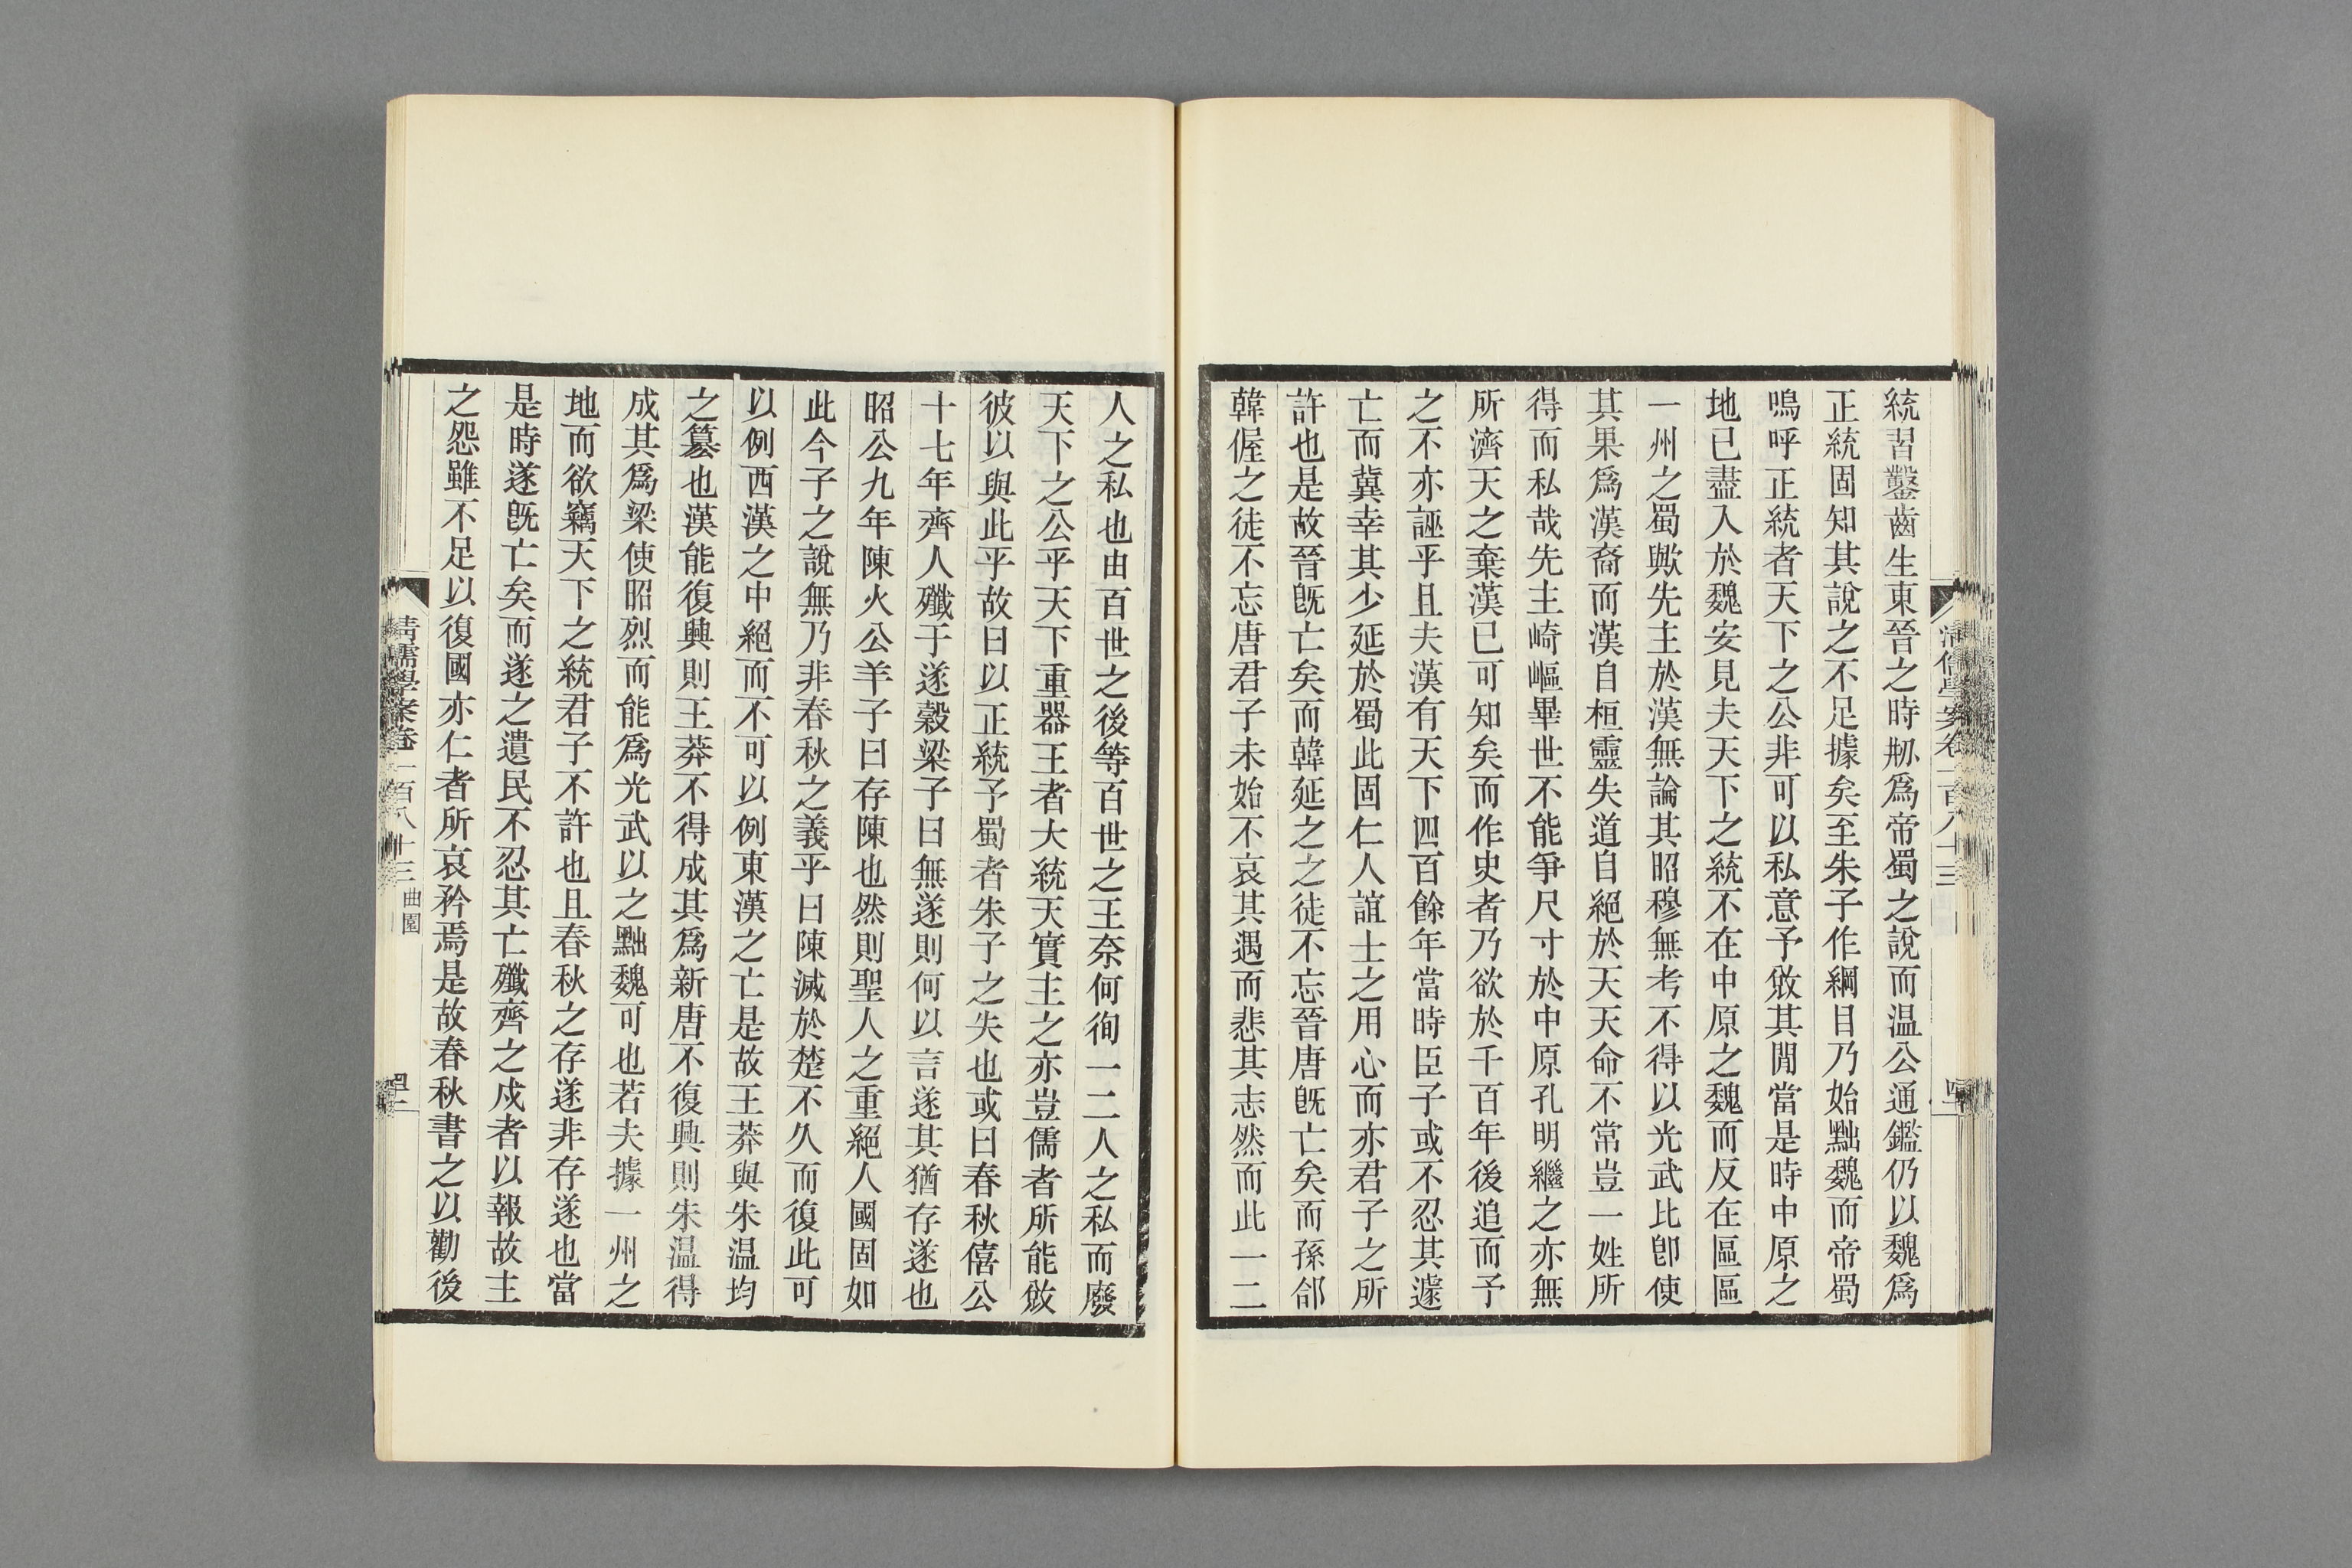 統習鑿齒生東晉之時刱爲帝蜀之說而温公通鑑仍以魏爲
正統固知其說之不足據矣至朱子作綱目乃始黜魏而帝蜀
嗚呼正統者天下之公非可以私意予敚其閒當是時中原之
地已盡入於魏安見夫天下之統不在中原之魏而反在區區
一州之蜀歟先主於漢無論其昭穆無考不得以光武比卽使
其果爲漢裔而漢自桓靈失道自絕於天天命不常豈一姓所
得而私哉先主崎嶇畢世不能爭尺寸於中原孔明繼之亦無
所濟天之棄漢已可知矣而作史者乃欲於千百年後追而予
之不亦誣乎且夫漢有天下四百餘年當時臣子或不忍其遽
亡而冀幸其少延於蜀此固仁人誼士之用心而亦君子之所
許也是故晉旣亡矣而韓延之之徒不忘晉唐旣亡矣而孫郃
韓偓之徒不忘唐君子未始不哀其遇而悲其志然而此一二
人之私也由百世之後等百世之王奈何徇一二人之私而廢
天下之公乎天下重器王者大統天實主之亦豈儒者所能敚
彼以與此乎故曰以正統予蜀者朱子之失也或曰春秋僖公
十七年齊人殲于遂穀梁子曰無遂則何以言遂其猶存遂也
昭公九年陳火公羊子曰存陳也然則聖人之重絕人國固如
此今子之說無乃非春秋之義乎曰陳滅於楚不久而復此可
以例西漢之中絕而不可以例東漢之亡是故王莽與朱温均
之簒也漢能復興則王莽不得成其爲新唐不復興則朱温得
成其爲梁使昭烈而能爲光武以之黜魏可也若夫據一州之
地而欲竊天下之統君子不許也且春秋之存遂非存遂也當
是時遂旣亡矣而遂之遺民不忍其亡殲齊之戍者以報故主
之怨雖不足以復國亦仁者所哀矜焉是故春秋書之以勸後
清儒學案卷一百八十三 曲園